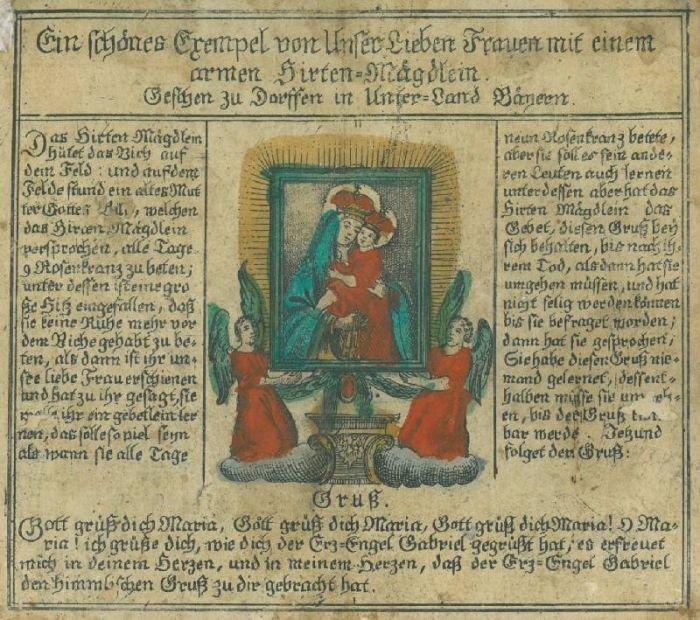 Ein schönes Exempel von Unser Lieben Frauen mit einem
armen Hirten-Mägdlein.
Geschen zu Dorffen in Unter-Land Bäyern.
Das Hirten Mägdlein
hütet das Vich auf
dem Feld: und auf dem
Felde stund ein altes Mut
ter Gottes Bild, welchen
das Hirten Mägdlein
versprochen, alle Tage
9 Rosenkranz zu beten;
unter dessen ist eine gro
ße Hitz eingefallen, daß
sie keine Ruhe mehr vor
dem Viche gehabt zu be-
ten, als dann ist ihr un-
sre liebe Frau erschienen
und hat zu ihr gesagt, sie
wolle ihr ein gebetlein ler
nen, das solle so viel seyn
als wann sie alle Tage
neun Rosenkranz betete,
aber sie soll es sein ande-
ren Leuten auch lernen
unter dessen aber hat das
Hirten Mägdlein das
Gebet, diesen Gruß bey
sich behalten, bis nach ih-
rem Tod, als dann hat sie
umgehen müssen, und hat
nicht selig werden können
bis sie befraget worden;
dann hat sie gesprochen,
Sie habe diesen Gruß nie-
mand gelernet, dessent-
halben müsse sie um
en, bis der Gruß
bar werde. Jetzund
folget der Gruß:
Gruß.
Gott grüß dich Maria, Gott grüß dich Maria, Gott grüß dich Maria! O Ma-
ria! ich grüße dich, wie dich der Erz-Engel Gabriel gegrüßt hat, es erfreuet
mich in deinem Herzen, und in meinem Herzen, daß der Erz-Engel Gabriel
den himmlischen Gruß zu dir gebracht hat.